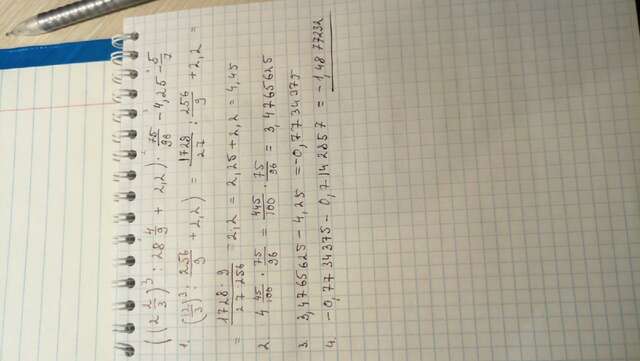 ((2 2/3)³ : 28 4/9 + 2,2) · 75/96 - 4,25 - 5/7
1. (12/3)³ : 256/9 + 2,2) = 1728/27 : 256/9 + 2,2 =
= 1728 · 9/27 · 256 = 2,2 = 2,25 + 2,2 = 4,45
2 4 45/100 · 75/96 = 445/100 · 75/96 = 3,4765625
3. 3,4765625 - 4,25 = -0,7734375
4. -0,7734375 - 0,7142857 = -1,4877232